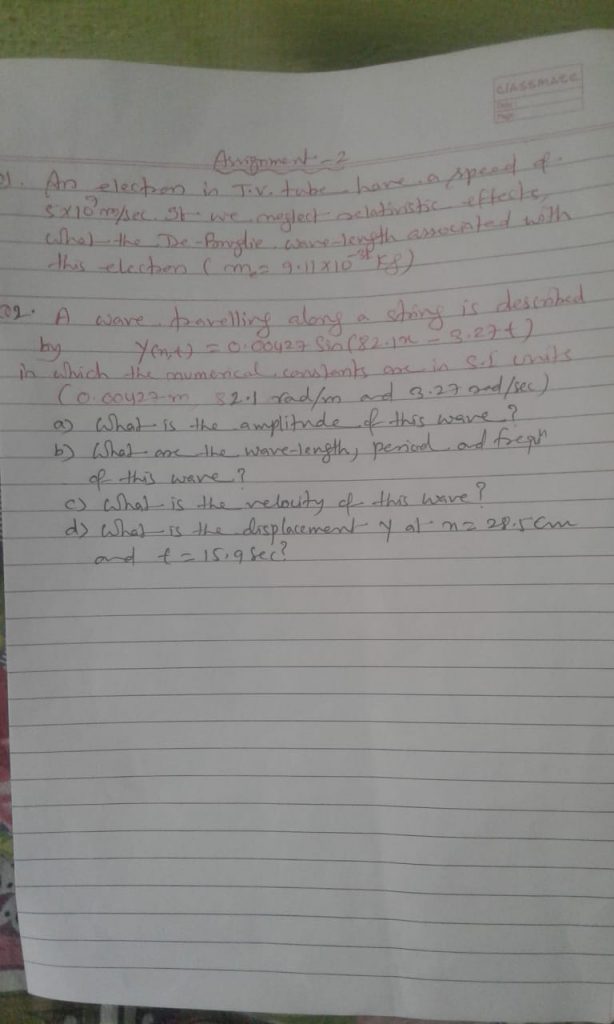 CLASSMATE
Date
Page
Assignment-2
Q1. An electron in T.V. tube have a speed of
5x10⁷ m/sec. If we neglect relativistic effects,
What the De-Broglie wave-length associated with
this electron (m₀= 9.11x10⁻³¹ Kg)
Q2. A wave travelling along a string is described
by Y(x,t) = 0.00427 Sin(82.1x - 3.27t)
in which the numerical constants are in S.I units
(0.00427-m, 82.1 rad/m and 3.27 rad/sec)
a) What is the amplitude of this wave?
b) What are the wave-length, period and freqⁿ
of this wave?
c) What is the velocity of this wave?
d) What is the displacement y at x= 28.5 cm
and t = 15.9 Sec?